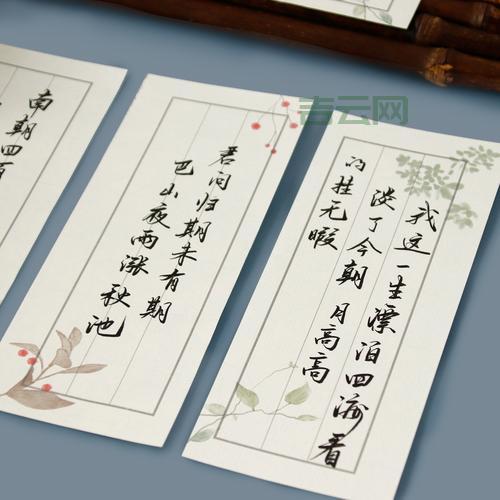 吉云网
南朝四百
君问归期未有期
巴山夜雨涨秋池
我这一生漂泊四海看
淡了今朝 月高高
的挂无暇